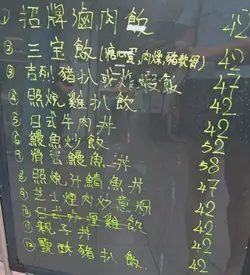 ① 招牌滷肉飯 42
② 三宝飯(糖心蛋,肉燥,豬軟骨) 42
③ 吉列豬扒或炸蝦飯 47
④ 照燒雞扒飯 42
⑤ 日式牛肉丼 42
⑥ 鰻魚炒飯 52
⑦ 鰻魚丼 58
⑧ 照燒汁鯖魚丼 47
⑨ 芝士煙肉炒意粉 42
⑩ 日式咖喱雞飯 42
⑪ 親子丼 42
⑫ 豬扒飯 42